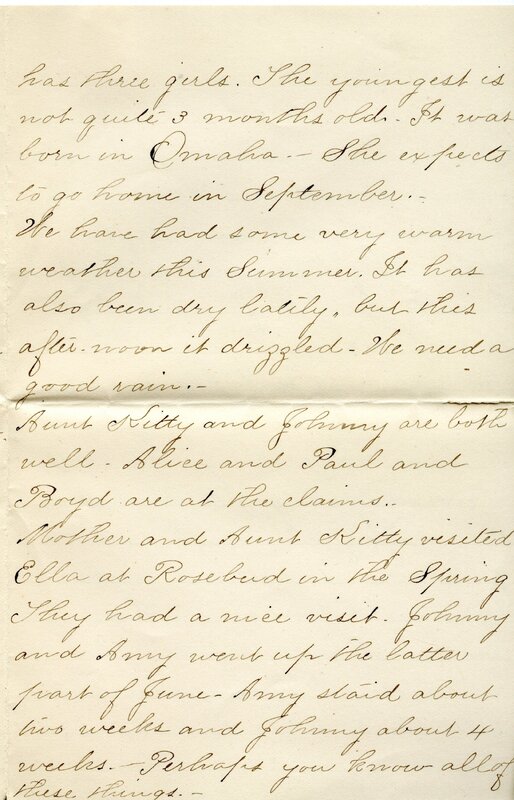 has three girls. The youngest is
not quite 3 months old. It was
born in Omaha. - She expects
to go home in September. -
We have had some very warm
weather this Summer. It has
also been dry latily, but this
after-noon it drizzled - We need a
good rain. -
Aunt Kitty and Johnny are both
well - Alice and Paul and
Boyd are at the claims..
Mother and Aunt Kitty visited
Ella at Rosebud in the Spring
They had a nice visit. Johnny
and Amy went up the latter
part of June - Amy staid about
two weeks and Johnny about 4
weeks. - Perhaps you know all of
these things. -